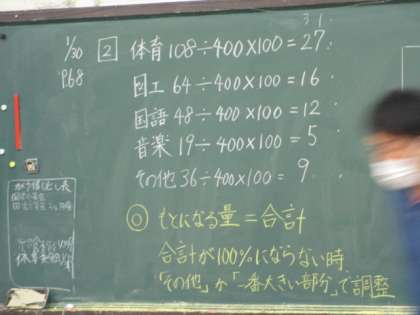 3 1.
1/30
P.68
2 体育 108÷400×100=27.
図工 64÷400×100=16
国語 48÷400×100=12
音楽 19÷400×100=5
その他 36÷400×100=9
◎ もとになる量=合計
合計が100%にならない時、
「その他」か「一番大きい部分」で調整